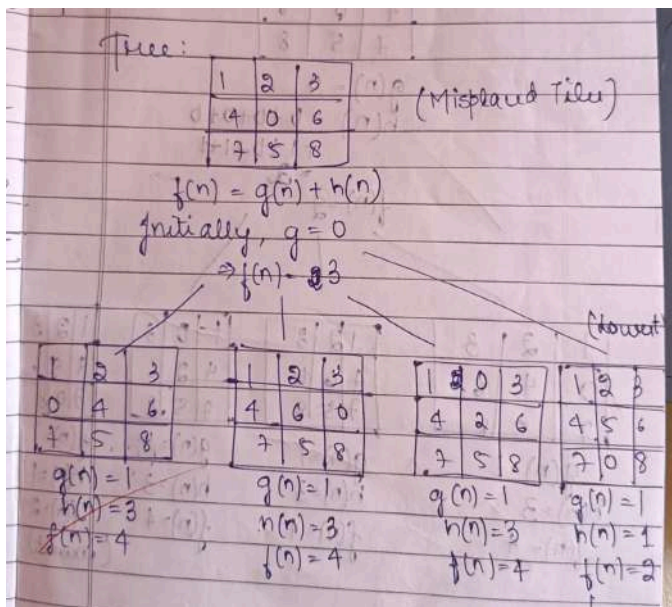 Tree:
1 2 3
4 0 6
7 5 8
(Misplaced Tiles)
f(n) = g(n) + h(n)
Initially, g = 0
⇒ f(n) = 3
(Lowest
1 2 3
0 4 6
7 5 8
g(n) = 1
h(n) = 3
f(n) = 4
1 2 3
4 6 0
7 5 8
g(n) = 1
h(n) = 3
f(n) = 4
1 0 3
4 2 6
7 5 8
g(n) = 1
h(n) = 3
f(n) = 4
1 2 3
4 5 6
7 0 8
g(n) = 1
h(n) = 1
f(n) = 2